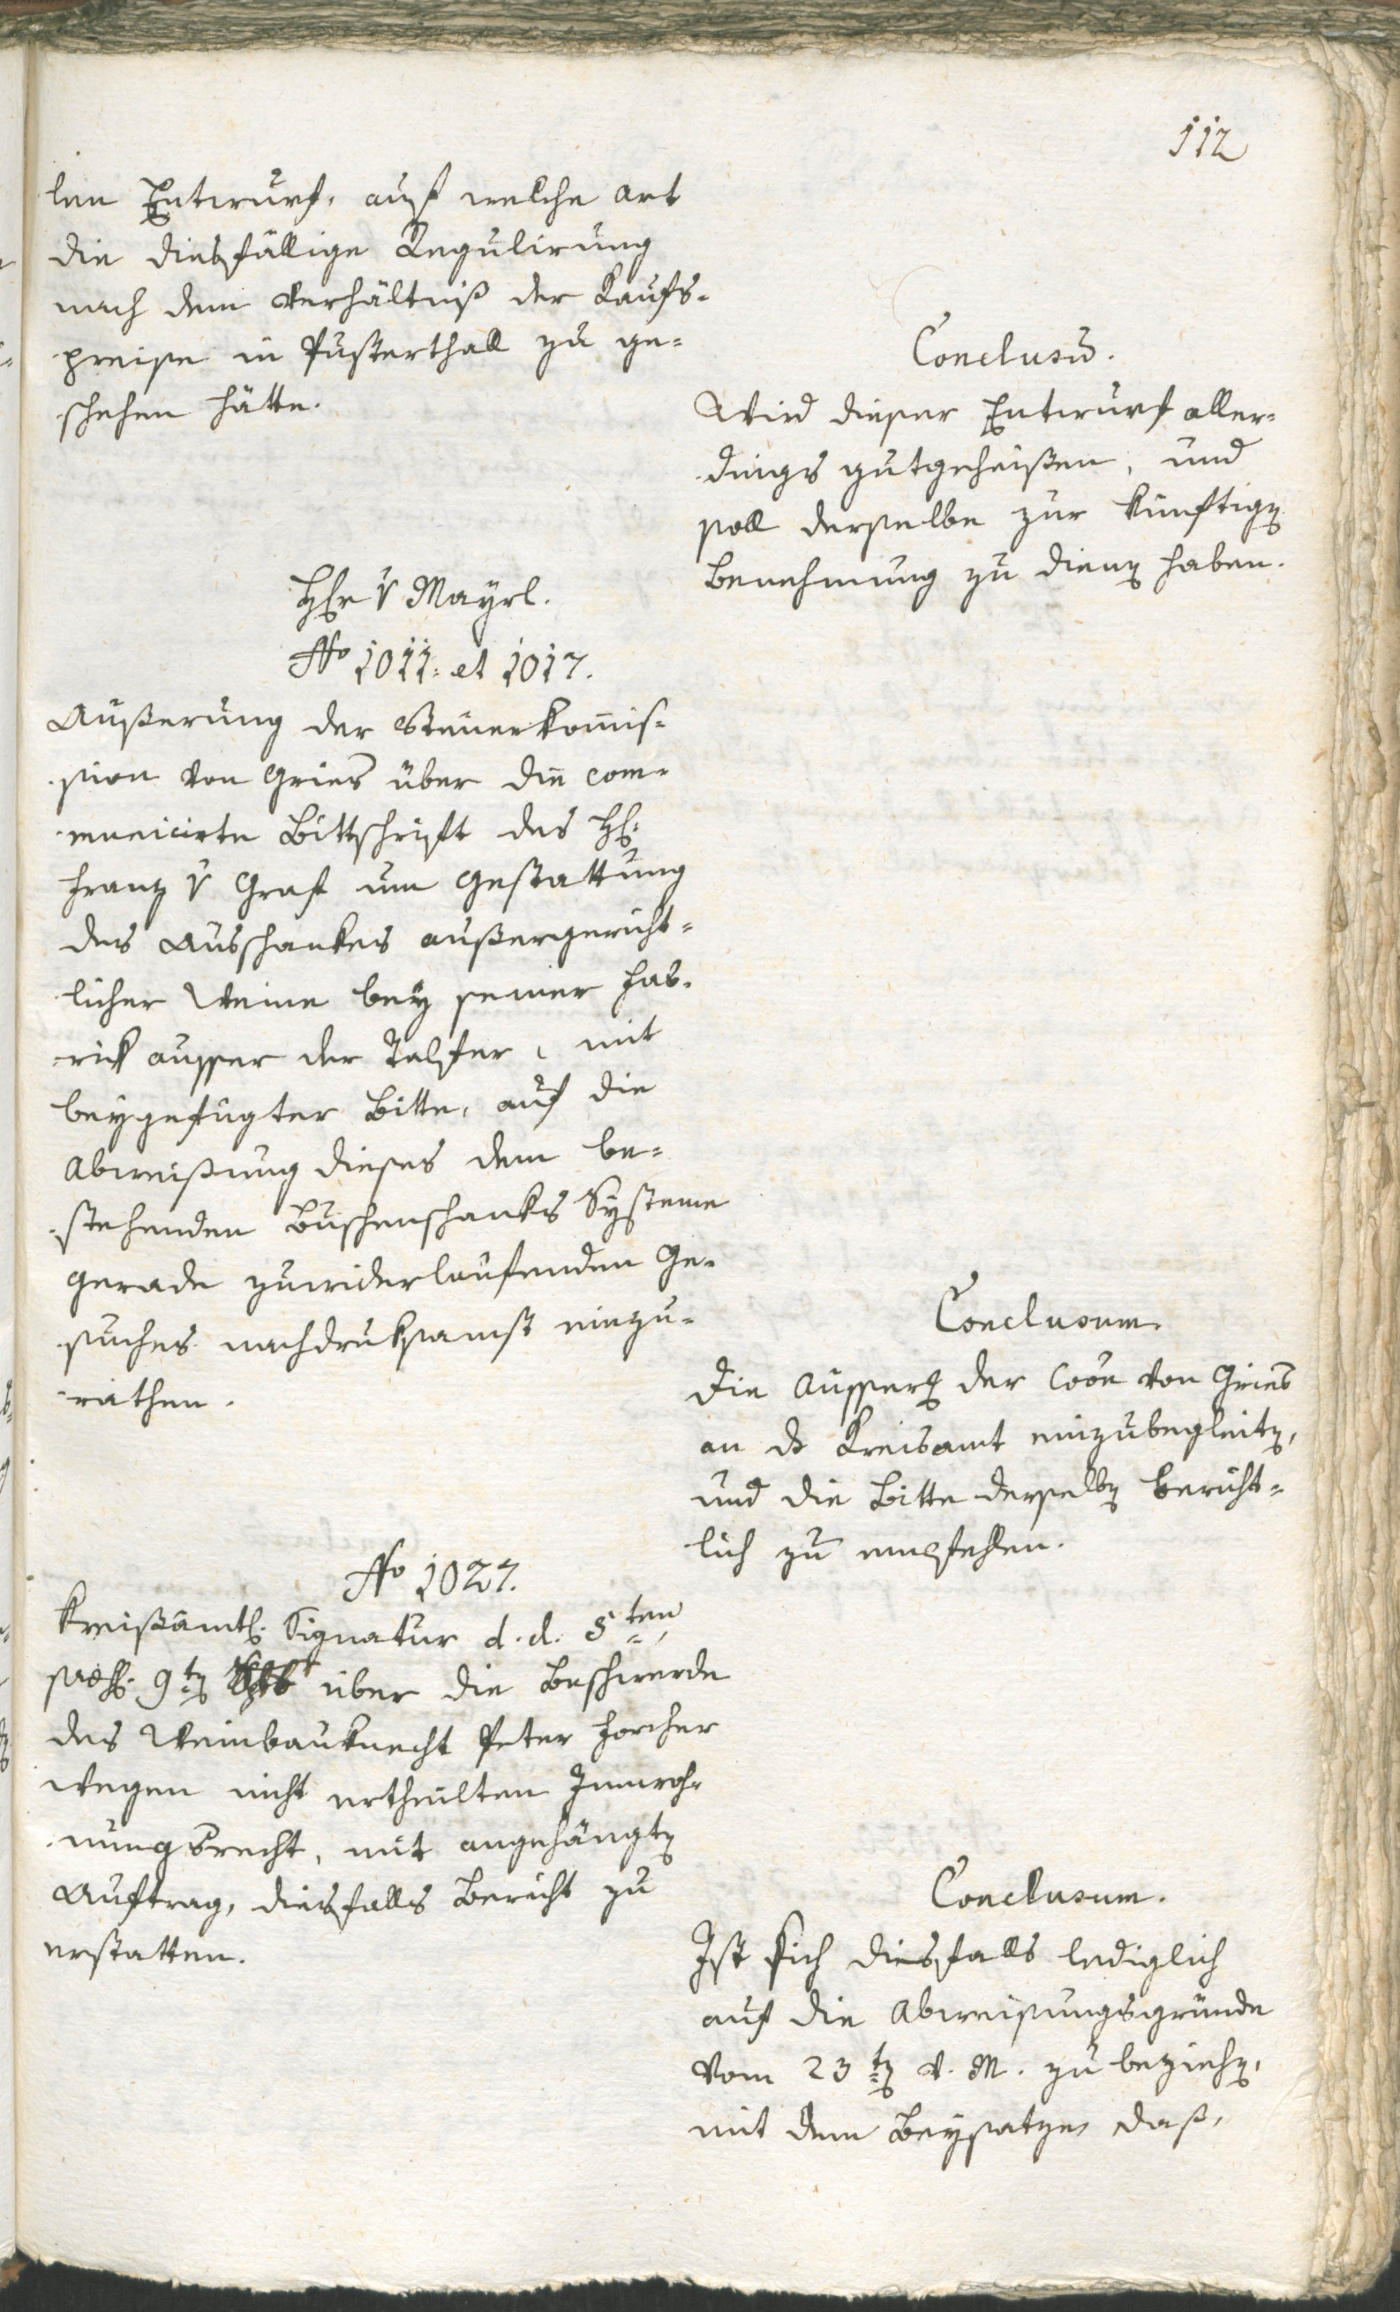 112
len Entwurf, auf welche Art
die diesfällige Regulirung
nach dem Verhältniß der Kaufs-
preise in Pusterthall zu ge-
schehen hätte.
Conclusū.
Wird dieser Entwurf aller-
dings gutgeheißen, und
soll derselbe zur künftigen
Benehmung zu dienen haben.
Hr v Mayrl.
No 1011. et 1017.
Äußerung der Steuerkom̄is-
sion von Gries über die com-
municirte Bittschrift des H.
Franz v Graf um Gestattung
des Ausschankes außergericht-
licher Weine bey seiner Fab-
rick ausser der Talfer, mit
beygefügter Bitte, auf die
Abweisung dieses dem be-
stehenden Buschenschanks Systeme
gerade zuwiderlaufenden Ge-
suches nachdruksamst einzu-
rathen.
Conclusum.
Die Äusserg der Coōn von Gries
an ds Kreisamt einzubegleiten,
und die Bitte derselben bericht-
lich zu empfehlen.
No 1027.
Kreißämtl. Signatur d. d. 5ten
9ten über die Beschwerde
des Weinbauknecht Peter Forcher
wegen nicht ertheilten Innwoh-
nungsrecht, mit angehängten
Auftrag, diesfalls Bericht zu
erstatten.
Conclusum.
Ist sich diesfalls lediglich
auf die Abweisungsgründe
vom 23ten v. M. zu beziehen,
mit dem Beysatze, daß,